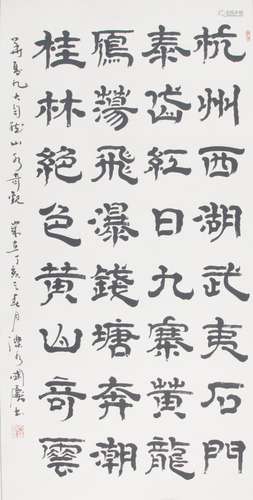 杭州西湖武夷石門
泰岱紅日九寨黃龍
鴈蕩飛瀑錢塘奔潮
桂林絕色黃山竒雲
華夏九大自然山水奇觀 歲在丁亥之春月